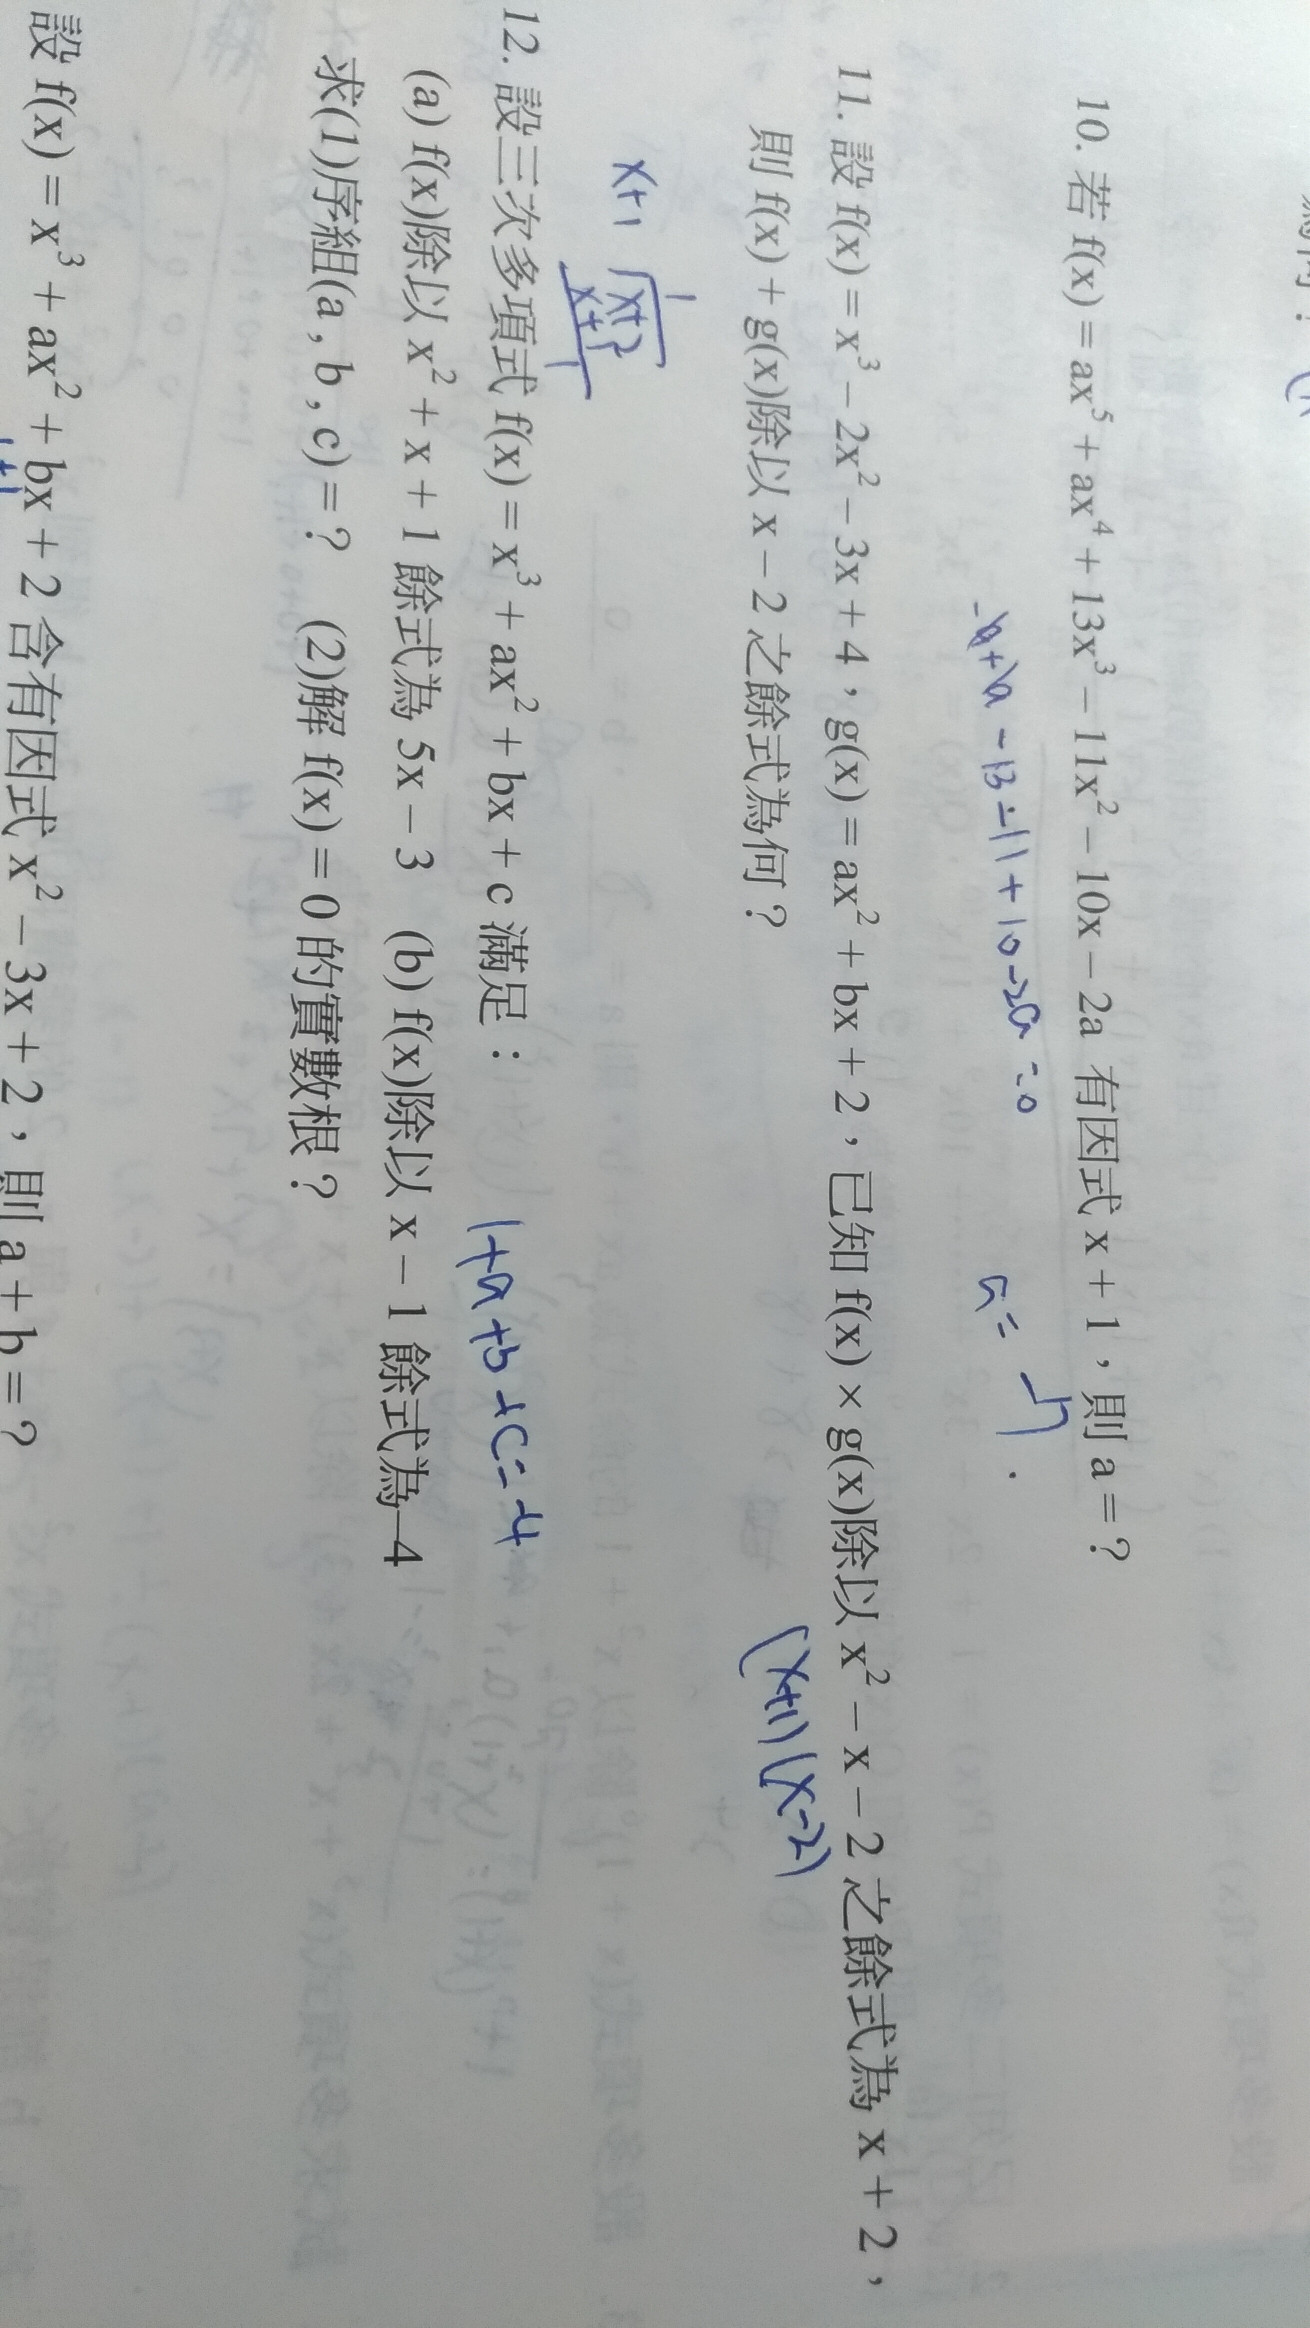 10. 若 f(x) = ax⁵ + ax⁴ + 13x³ − 11x² − 10x − 2a 有因式 x + 1，則 a = ?
-a+a-13-11+10-2a=0
a = -7
11. 設 f(x) = x³ − 2x² − 3x + 4，g(x) = ax² + bx + 2，已知 f(x) × g(x)除以 x² − x − 2 之餘式為 x + 2，
則 f(x) + g(x)除以 x − 2 之餘式為何？
(x+1)(x-2)
1
x+1 x+2
x+1
1
12. 設三次多項式 f(x) = x³ + ax² + bx + c 滿足：
1+a+b+c=-4
(a) f(x)除以 x² + x + 1 餘式為 5x − 3 (b) f(x)除以 x − 1 餘式為−4
求(1)序組(a , b , c) = ? (2)解 f(x) = 0 的實數根？
設 f(x) = x³ + ax² + bx + 2 含有因式 x² − 3x + 2，則 a + b = ?